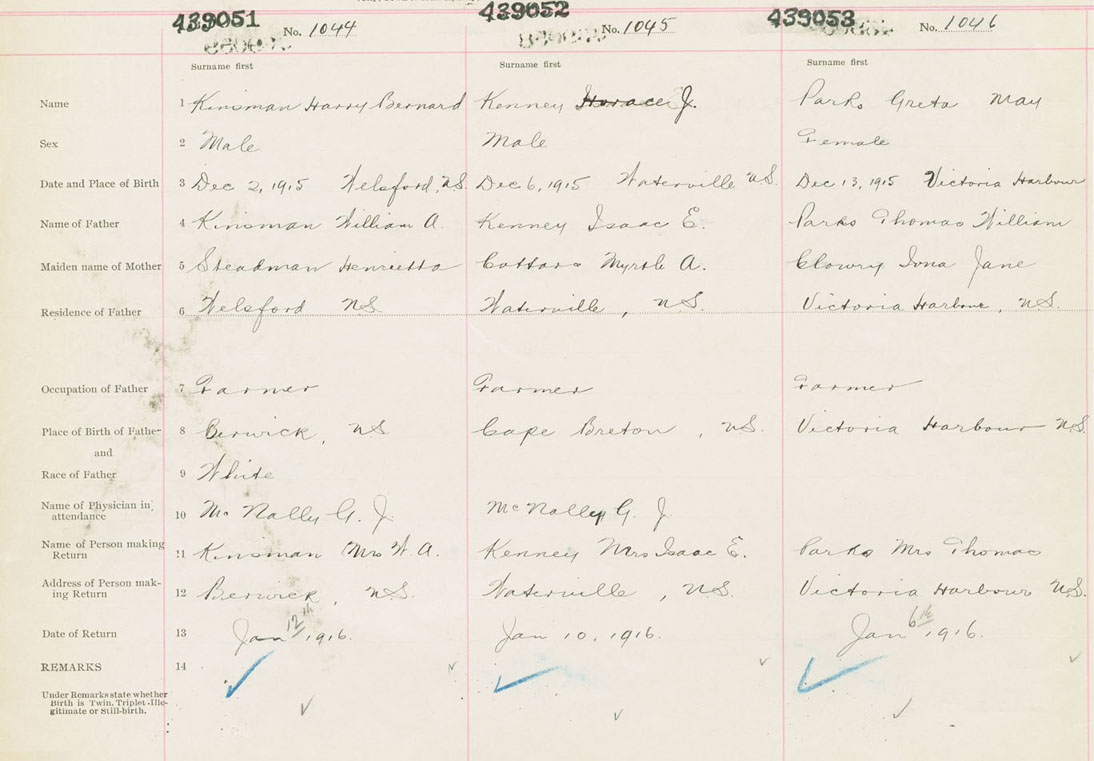 439051 439052 439053
No. 1044 No. 1045 No. 1046
Surname first Surname first Surname first
Name 1 Kinsman Harry Bernard Kenney Horace J. Parks Greta May
Sex 2 Male Male Female
Date and Place of Birth 3 Dec 2, 1915 Welsford, N.S. Dec 6, 1915 Waterville N.S. Dec 13, 1915 Victoria Harbour
Name of Father 4 Kinsman William A. Kenney Isaac E. Parks Thomas William
Maiden name of Mother 5 Steadman Henrietta Myrtle A. Clowry Iona Jane
Residence of Father 6 Welsford N.S. Waterville, N.S. Victoria Harbour, N.S.
Occupation of Father 7 Farmer Farmer Farmer
Place of Birth of Father 8 Berwick, NS Cape Breton, N.S. Victoria Harbour N.S.
and
Race of Father 9 White
Name of Physician in
attendance 10 Mc Nally G. J. McNally G. J.
Name of Person making
Return 11 Kinsman Mrs W. A. Kenney Mrs Isaac E. Parks Mrs Thomas
Address of Person mak-
ing Return 12 Berwick, N.S. Waterville, N.S. Victoria Harbour N.S.
Date of Return 13 Jan 12th 1916. Jan 10, 1916. Jan 6th, 1916.
REMARKS 14
Under Remarks state whether
Birth is Twin, Triplet, Ille-
gitimate or Still-birth.